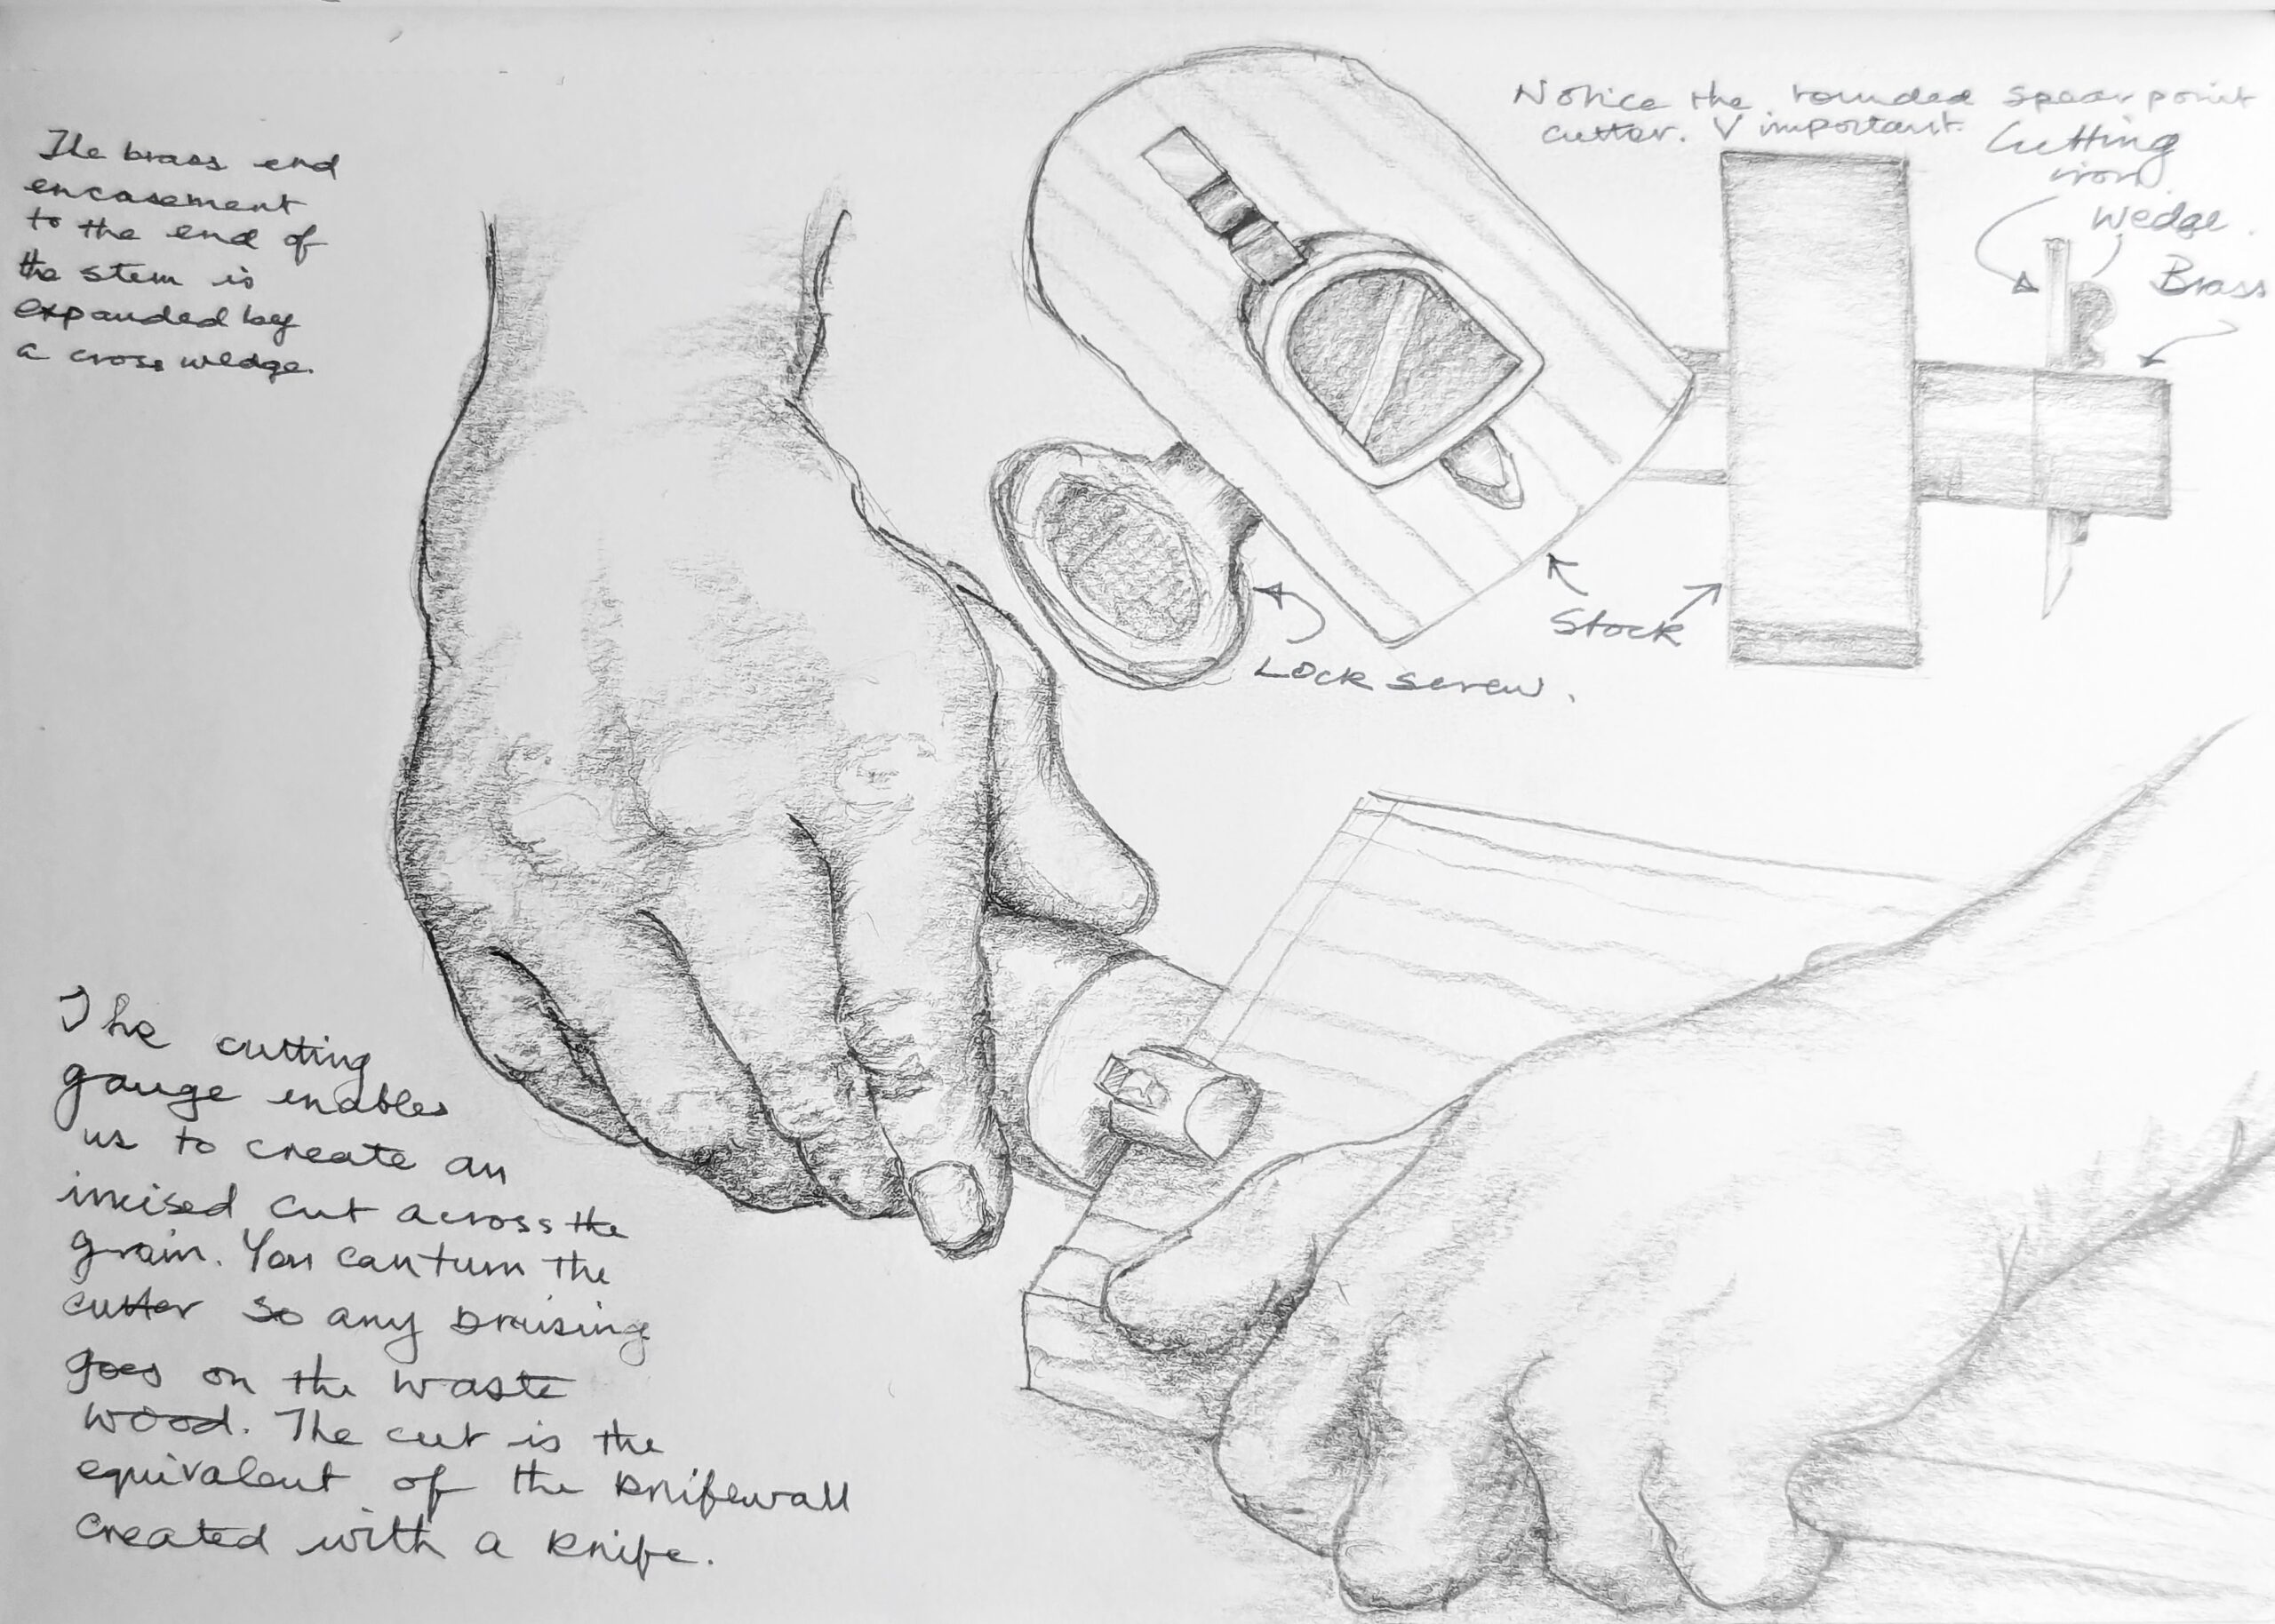 The brass end
encasement
to the end of
the stem is
expanded by
a cross wedge.
Notice the rounded spear point
cutter. V important.
Cutting
iron.
Wedge.
Brass
Stock
Lock screw.
The cutting
gauge enables
us to create an
incised cut across the
grain. You can turn the
cutter so any bruising
goes on the waste
wood. The cut is the
equivalent of the knifewall
created with a knife.